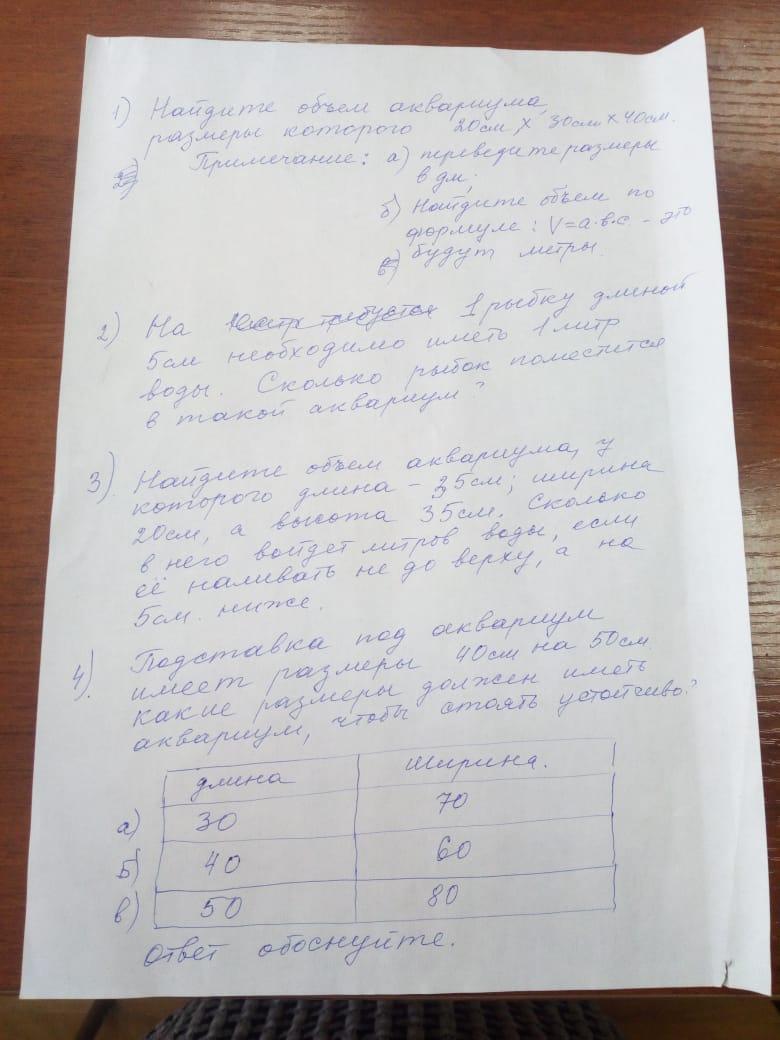 1) Найдите объем аквариума,
размеры которого 20см х 30см х 40см.
Примечание: а) переведите размеры
в дм;
б) Найдите объем по
формуле: V=а·в·с - это
будут метры.
2) На 1 рыбку длиной
5см необходимо иметь 1 литр
воды. Сколько рыбок поместится
в такой аквариум?
3) Найдите объем аквариума, у
которого длина - 35см; ширина
20см, а высота 35см. Сколько
в него войдет литров воды, если
её наливать не до верху, а на
5см. ниже.
4). Подставка под аквариум
имеет размеры 40см на 50см.
какие размеры должен иметь
аквариум, чтобы стоять устойчиво?
длина ширина.
а) 30 70
б) 40 60
в) 50 80
ответ обоснуйте.